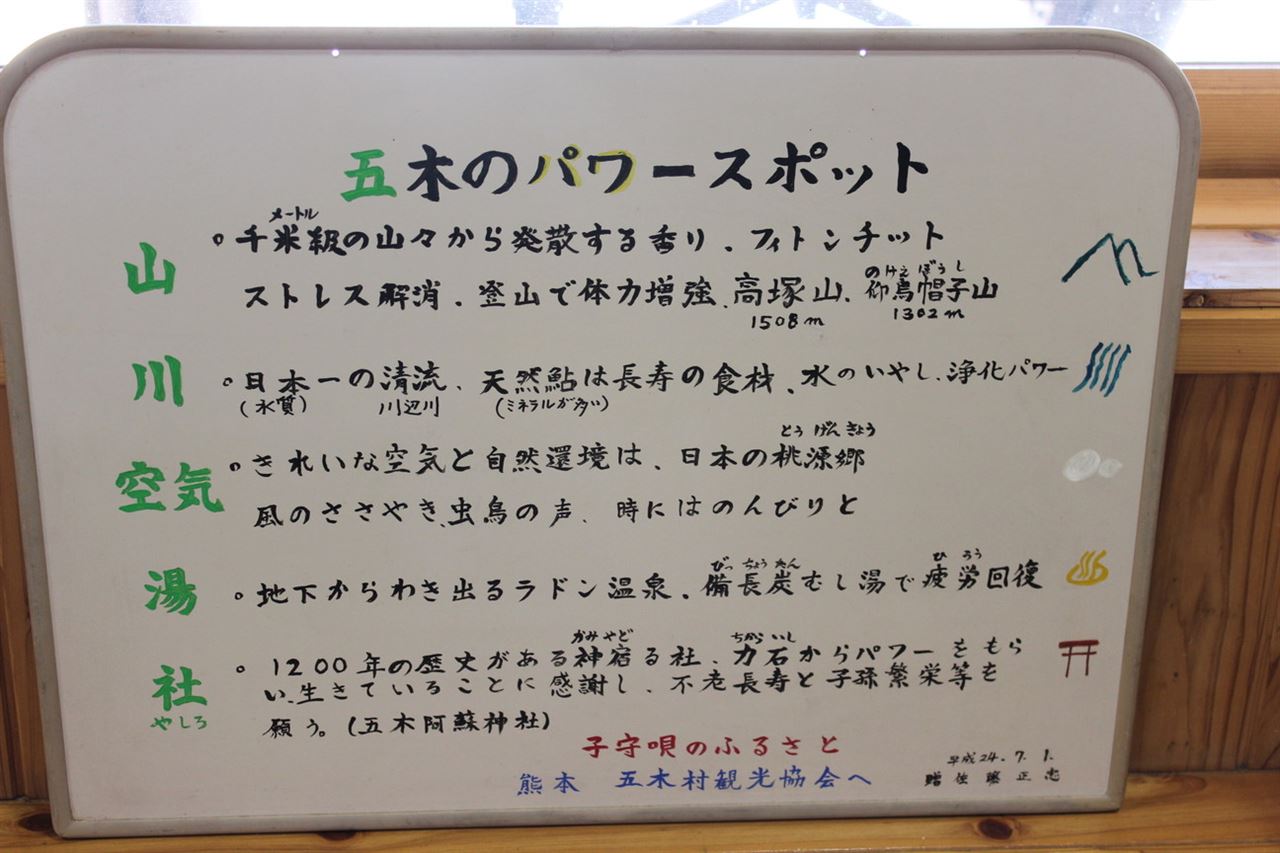 五木のパワースポット
メートル
山 ○千米級の山々から発散する香り、フィトンチット
のけえぼうし
ストレス解消、登山で体力増強、高塚山、仰烏帽子山
1508m 1302m
川 ○日本一の清流、天然鮎は長寿の食材、水のいやし、浄化パワー
(水質) 川辺川 (ミネラルが多い)
とうげんきょう
空気 ○きれいな空気と自然環境は、日本の桃源郷
風のささやき、虫鳥の声、時にはのんびりと
びっちょうたん ひろう
湯 ○地下からわき出るラドン温泉、備長炭むし湯で疲労回復
かみやど ちからいし
社 ○1200年の歴史がある神宿る社、力石からパワーをもら
やしろ い、生きていることに感謝し、不老長寿と子孫繁栄等を
願う。(五木阿蘇神社)
子守唄のふるさと
熊本 五木村観光協会へ
平成24.7.1.
贈 佐藤正忠